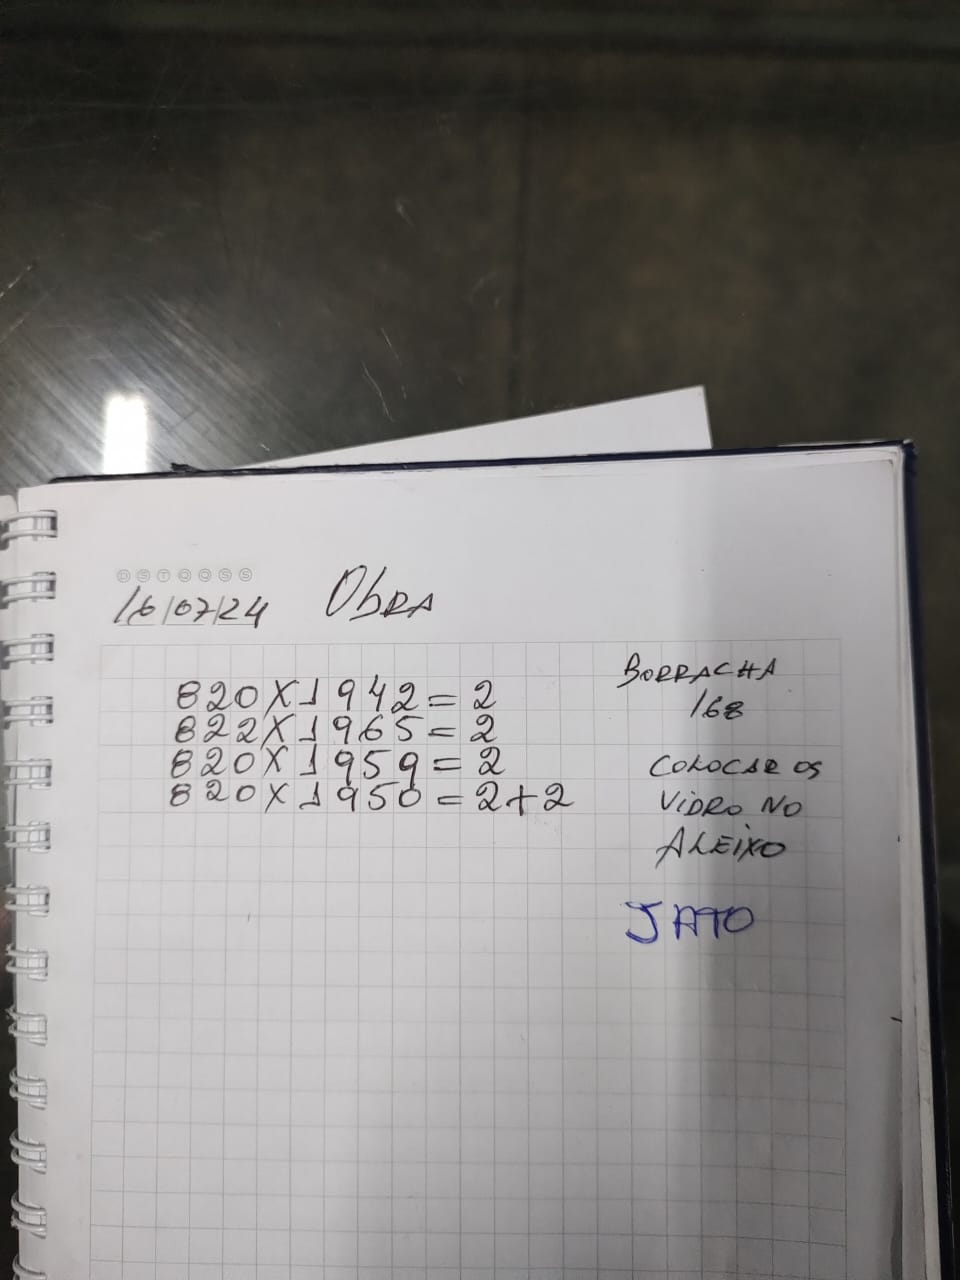 D S T Q Q S S
16/07/24 Obra
820 X 1942 = 2
822 X 1965 = 2
820 X 1959 = 2
820 X 1950 = 2+2
BORRACHA
168
COLOCAR OS
VIDRO NO
ALEIXO
JATO